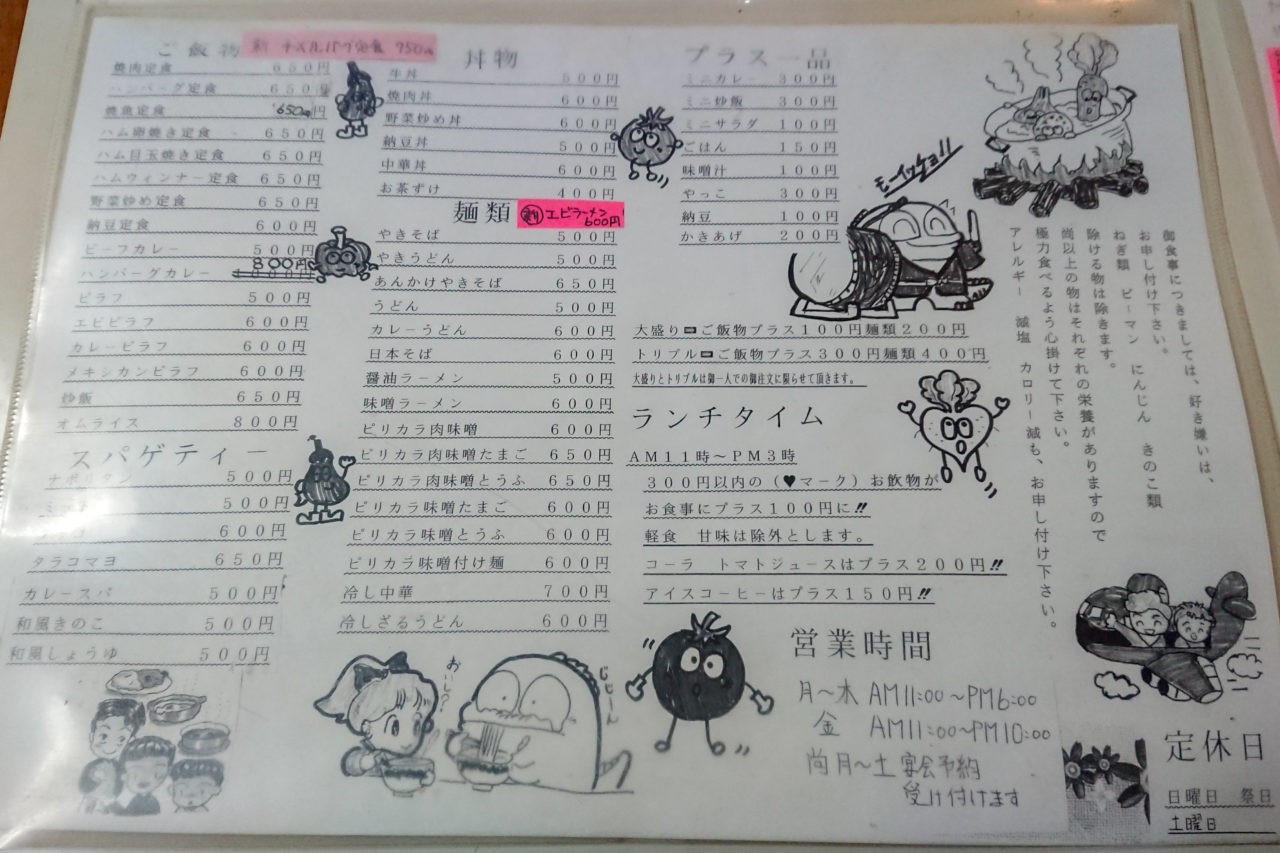 ご飯物
新 ナスルバブ定食 750円
焼肉定食 650円
ハンバーグ定食 650円
焼魚定食 650円
ハム卵焼き定食 650円
ハム目玉焼き定食 650円
ハムウィンナー定食 650円
野菜炒め定食 650円
納豆定食 600円
ビーフカレー 500円
ハンバーグカレー 800円
ピラフ 500円
エビピラフ 600円
カレーピラフ 600円
メキシカンピラフ 600円
炒飯 650円
オムライス 800円
スパゲティー
ナポリタン 500円
500円
600円
タラコマヨ 650円
カレースパ 500円
和風きのこ 500円
和風しょうゆ 500円
丼物
牛丼 500円
焼肉丼 600円
野菜炒め丼 600円
納豆丼 500円
中華丼 600円
お茶ずけ 400円
麺類
新 エビラーメン 600円
やきそば 500円
やきうどん 500円
あんかけやきそば 650円
うどん 500円
カレーうどん 600円
日本そば 600円
醤油ラーメン 500円
味噌ラーメン 600円
ピリカラ肉味噌 600円
ピリカラ肉味噌たまご 650円
ピリカラ肉味噌とうふ 650円
ピリカラ味噌たまご 600円
ピリカラ味噌とうふ 600円
ピリカラ味噌付け麺 600円
冷し中華 700円
冷しざるうどん 600円
おいしっ?
じじーん
プラス一品
ミニカレー 300円
ミニ炒飯 300円
ミニサラダ 100円
ごはん 150円
味噌汁 100円
やっこ 300円
納豆 100円
かきあげ 200円
モーイッチョ!!
大盛り➡ご飯物プラス100円麺類200円
トリプル➡ご飯物プラス300円麺類400円
大盛りとトリプルは御一人での御注文に限らせて頂きます。
ランチタイム
AM11時～PM3時
300円以内の(♥マーク)お飲物が
お食事にプラス100円に!!
軽食 甘味は除外とします。
コーラ トマトジュースはプラス200円!!
アイスコーヒーはプラス150円!!
営業時間
月～木 AM11:00～PM6:00
金 AM11:00～PM10:00
尚月～土宴会予約
受け付けます
御食事につきましては、好き嫌いは、
お申し付け下さい。
ねぎ類 ピーマン にんじん きのこ類
除ける物は除きます。
尚以上の物はそれぞれの栄養がありますので
極力食べるよう心掛けて下さい。
アレルギー 減塩 カロリー減も、お申し付け下さい。
定休日
日曜日 祭日
土曜日